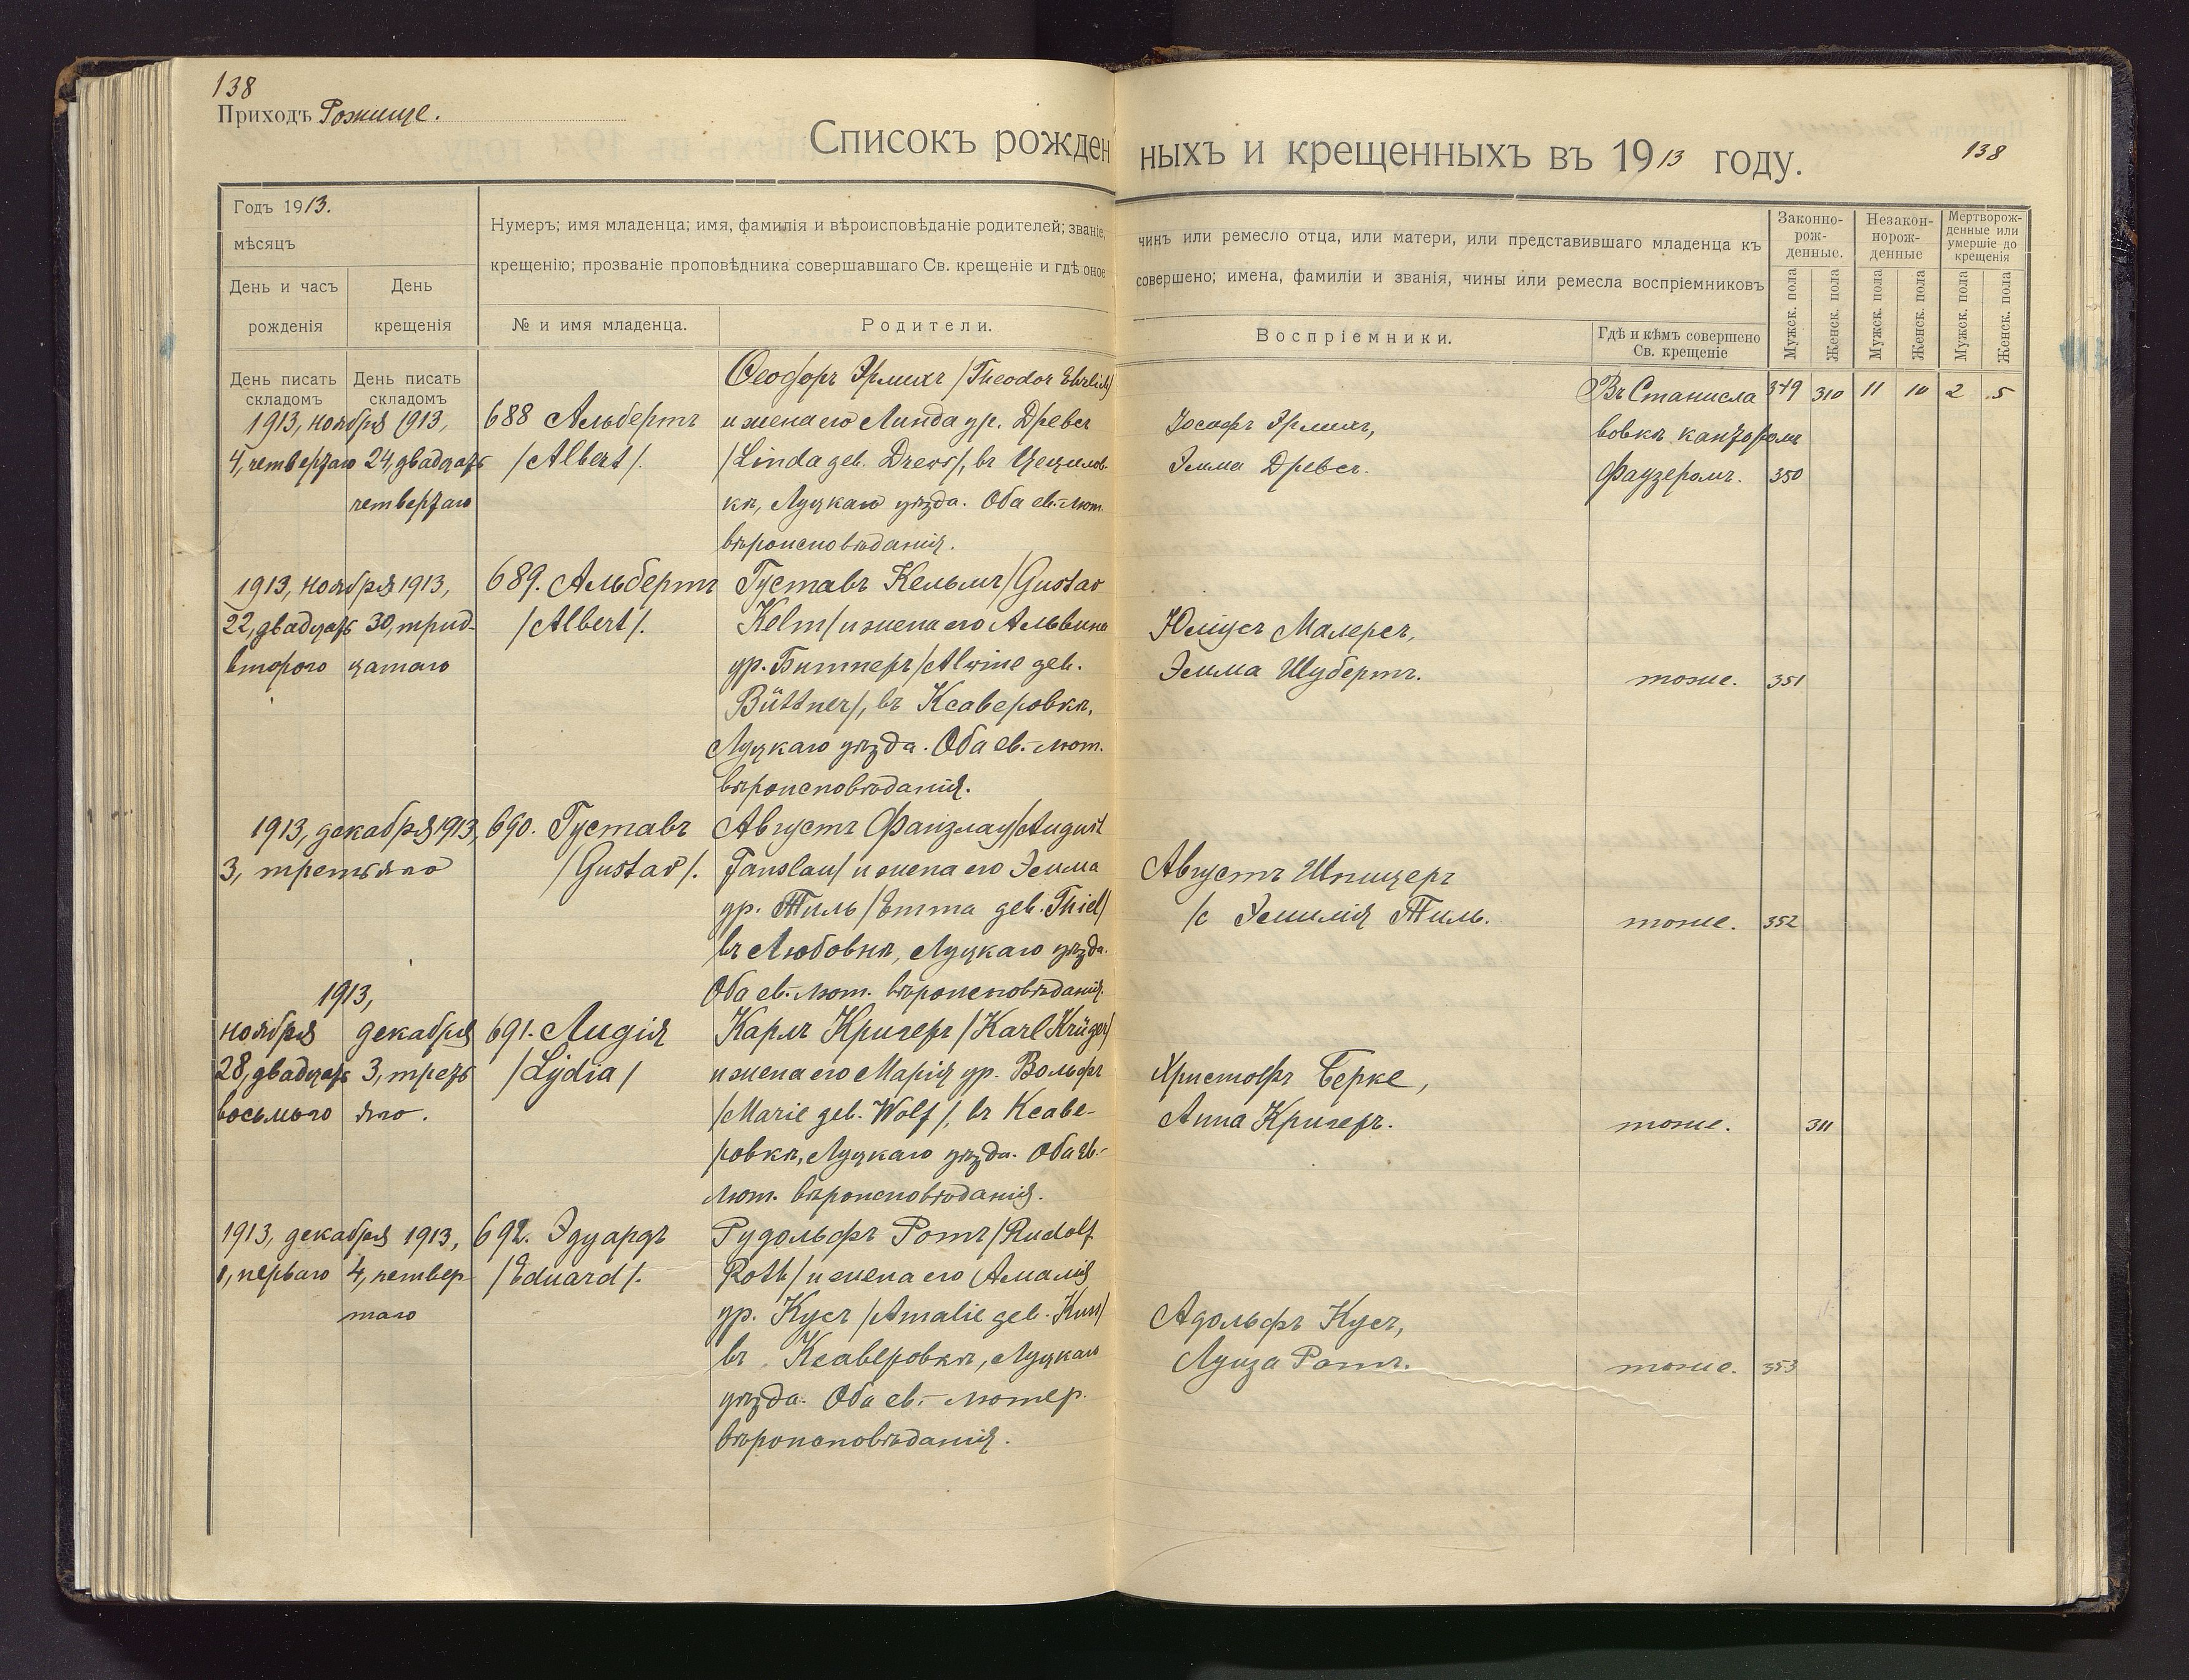 138
Приходъ Рожище.
Списокъ рожденныхъ и крещенныхъ въ 1913 году.
138
Годъ 1913.
мѣсяцъ
День и часъ рожденія
День крещенія
Нумеръ; имя младенца; имя, фамилія и вѣроисповѣданіе родителей; званіе, чинъ или ремесло отца, или матери, или представившаго младенца къ
крещенію; прозваніе проповѣдника совершавшаго Св. крещеніе и гдѣ оное совершено; имена, фамиліи и званія, чины или ремесла воспріемниковъ
№ и имя младенца.
Родители.
Воспріемники.
Гдѣ и кѣмъ совершено
Св. крещеніе
Законно-
рож-
денные.
Незакон-
норож-
денные
Мертворож-
денные или
умершіе до
крещенія
Мужск. пола
Женск. пола
Мужск. пола
Женск. пола
Мужск. пола
Женск. пола
День писать
складомъ
День писать
складомъ
349 310 11 10 2 5
1913, ноября
4, четвертаго
1913,
24, двадцать
четвертаго
688 Альбертъ
/Albert/.
Ѳеодоръ Эрлихъ /Theodor Ehrlich/
и жена его Линда ур. Древсъ
/Linda geb. Drews/, въ Цецилов-
кѣ, Луцкаго уѣзда. Оба ев.-лют.
вѣроисповѣданія.
Іосифъ Эрлихъ,
Эмма Древсъ.
Въ Станисла
вовкѣ канторомъ
Фаузеромъ.
350
1913, ноября
22, двадцать
второго
1913,
30, трид-
цатаго
689. Альбертъ
/Albert/.
Густавъ Кельмъ /Gustav
Kelm/ и жена его Альвина
ур. Битнеръ /Alwine geb.
Büttner/, въ Ксаверовкѣ,
Луцкаго уѣзда. Оба ев.-лют.
вѣроисповѣданія.
Юліусъ Малересъ,
Эмма Шубертъ.
тоже.
351
1913, декабря 1913,
3, третьяго
690. Густавъ
/Gustav/.
Августъ Фанзлау /August
Fanslau/ и жена его Эмма
ур. Тиль /Emma geb. Thiel/
въ Любовнѣ, Луцкаго уѣзда.
Оба ев.-лют. вѣроисповѣданія.
Августъ Шпицеръ
/с Эмилія Тиль.
тоже.
352
1913,
ноября
28, двадцать
восьмого
декабря
3, треть
яго.
691. Лидія
/Lydia/
Карлъ Кригеръ /Karl Krüger/
и жена его Марія ур. Вольфъ
/Marie geb. Wolf/, въ Ксаве-
ровкѣ, Луцкаго уѣзда. Оба ев.-
лют. вѣроисповѣданія.
Христофъ Берке,
Анна Кригеръ.
тоже.
311
1913, декабря
1, перваго
1913,
4, четвер-
таго
692. Эдуардъ
/Eduard/.
Рудольфъ Ротъ /Rudolf
Roth/ и жена его Амалія
ур. Кусъ /Amalie geb. Kuss/
въ Ксаверовкѣ, Луцкаго
уѣзда. Оба ев.-лютер.
вѣроисповѣданія.
Адольфъ Кусъ,
Луиза Ротъ.
тоже.
353